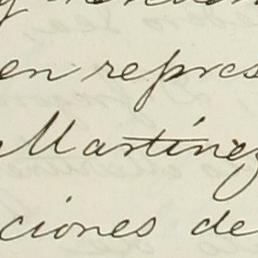 en repres
Martínez
ciones de